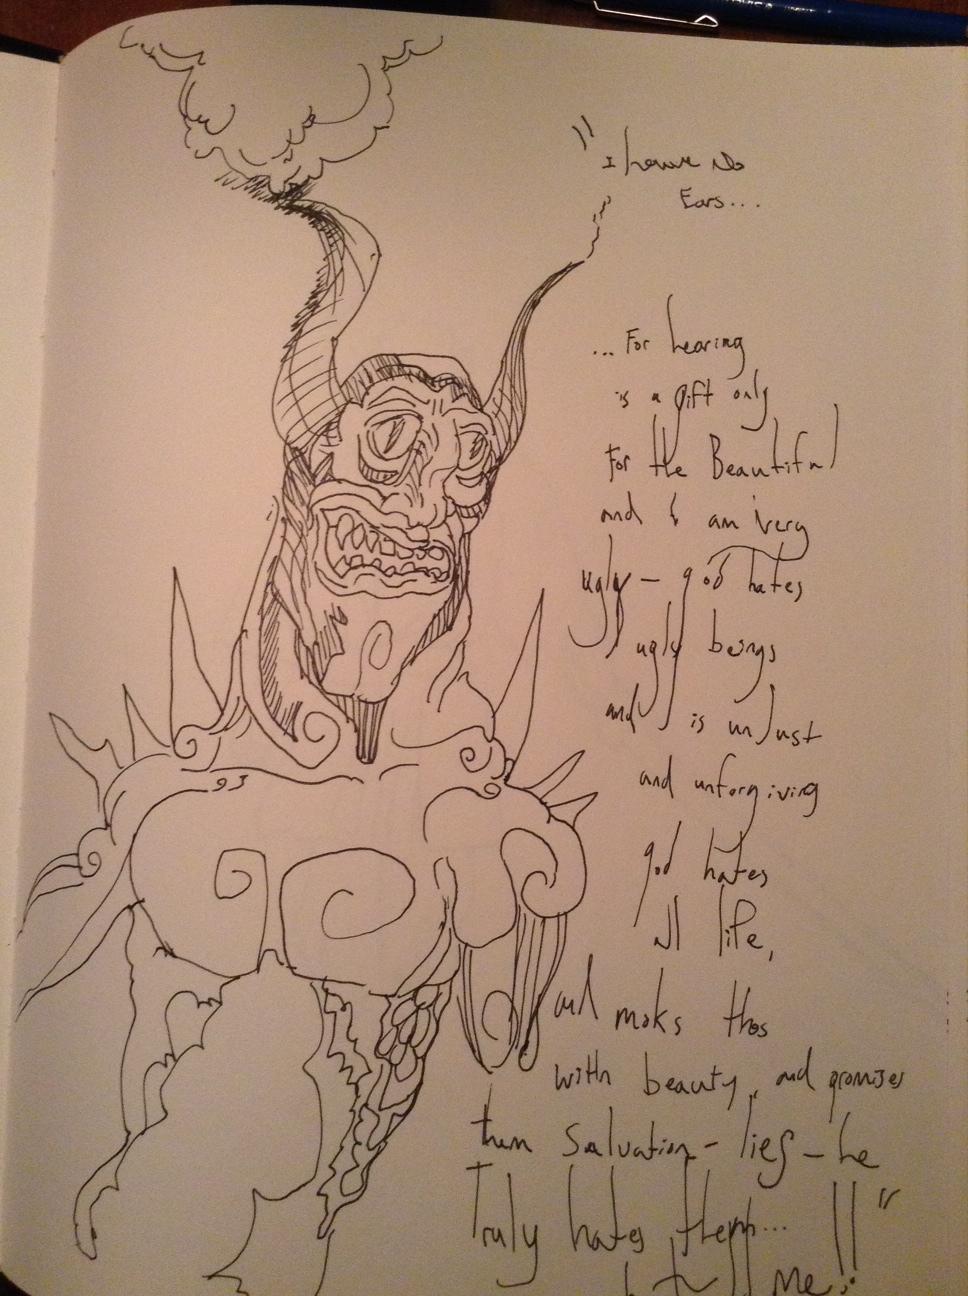 "I have no
Ears...
...For hearing
is a gift only
For the Beautiful
and I am very
ugly - god hates
ugly beings
and is unJust
and unforgiving
god hates
all life,
and moks thos
with beauty, and promises
them Salvation - lies - he
Truly hates them... !!"
me!
93